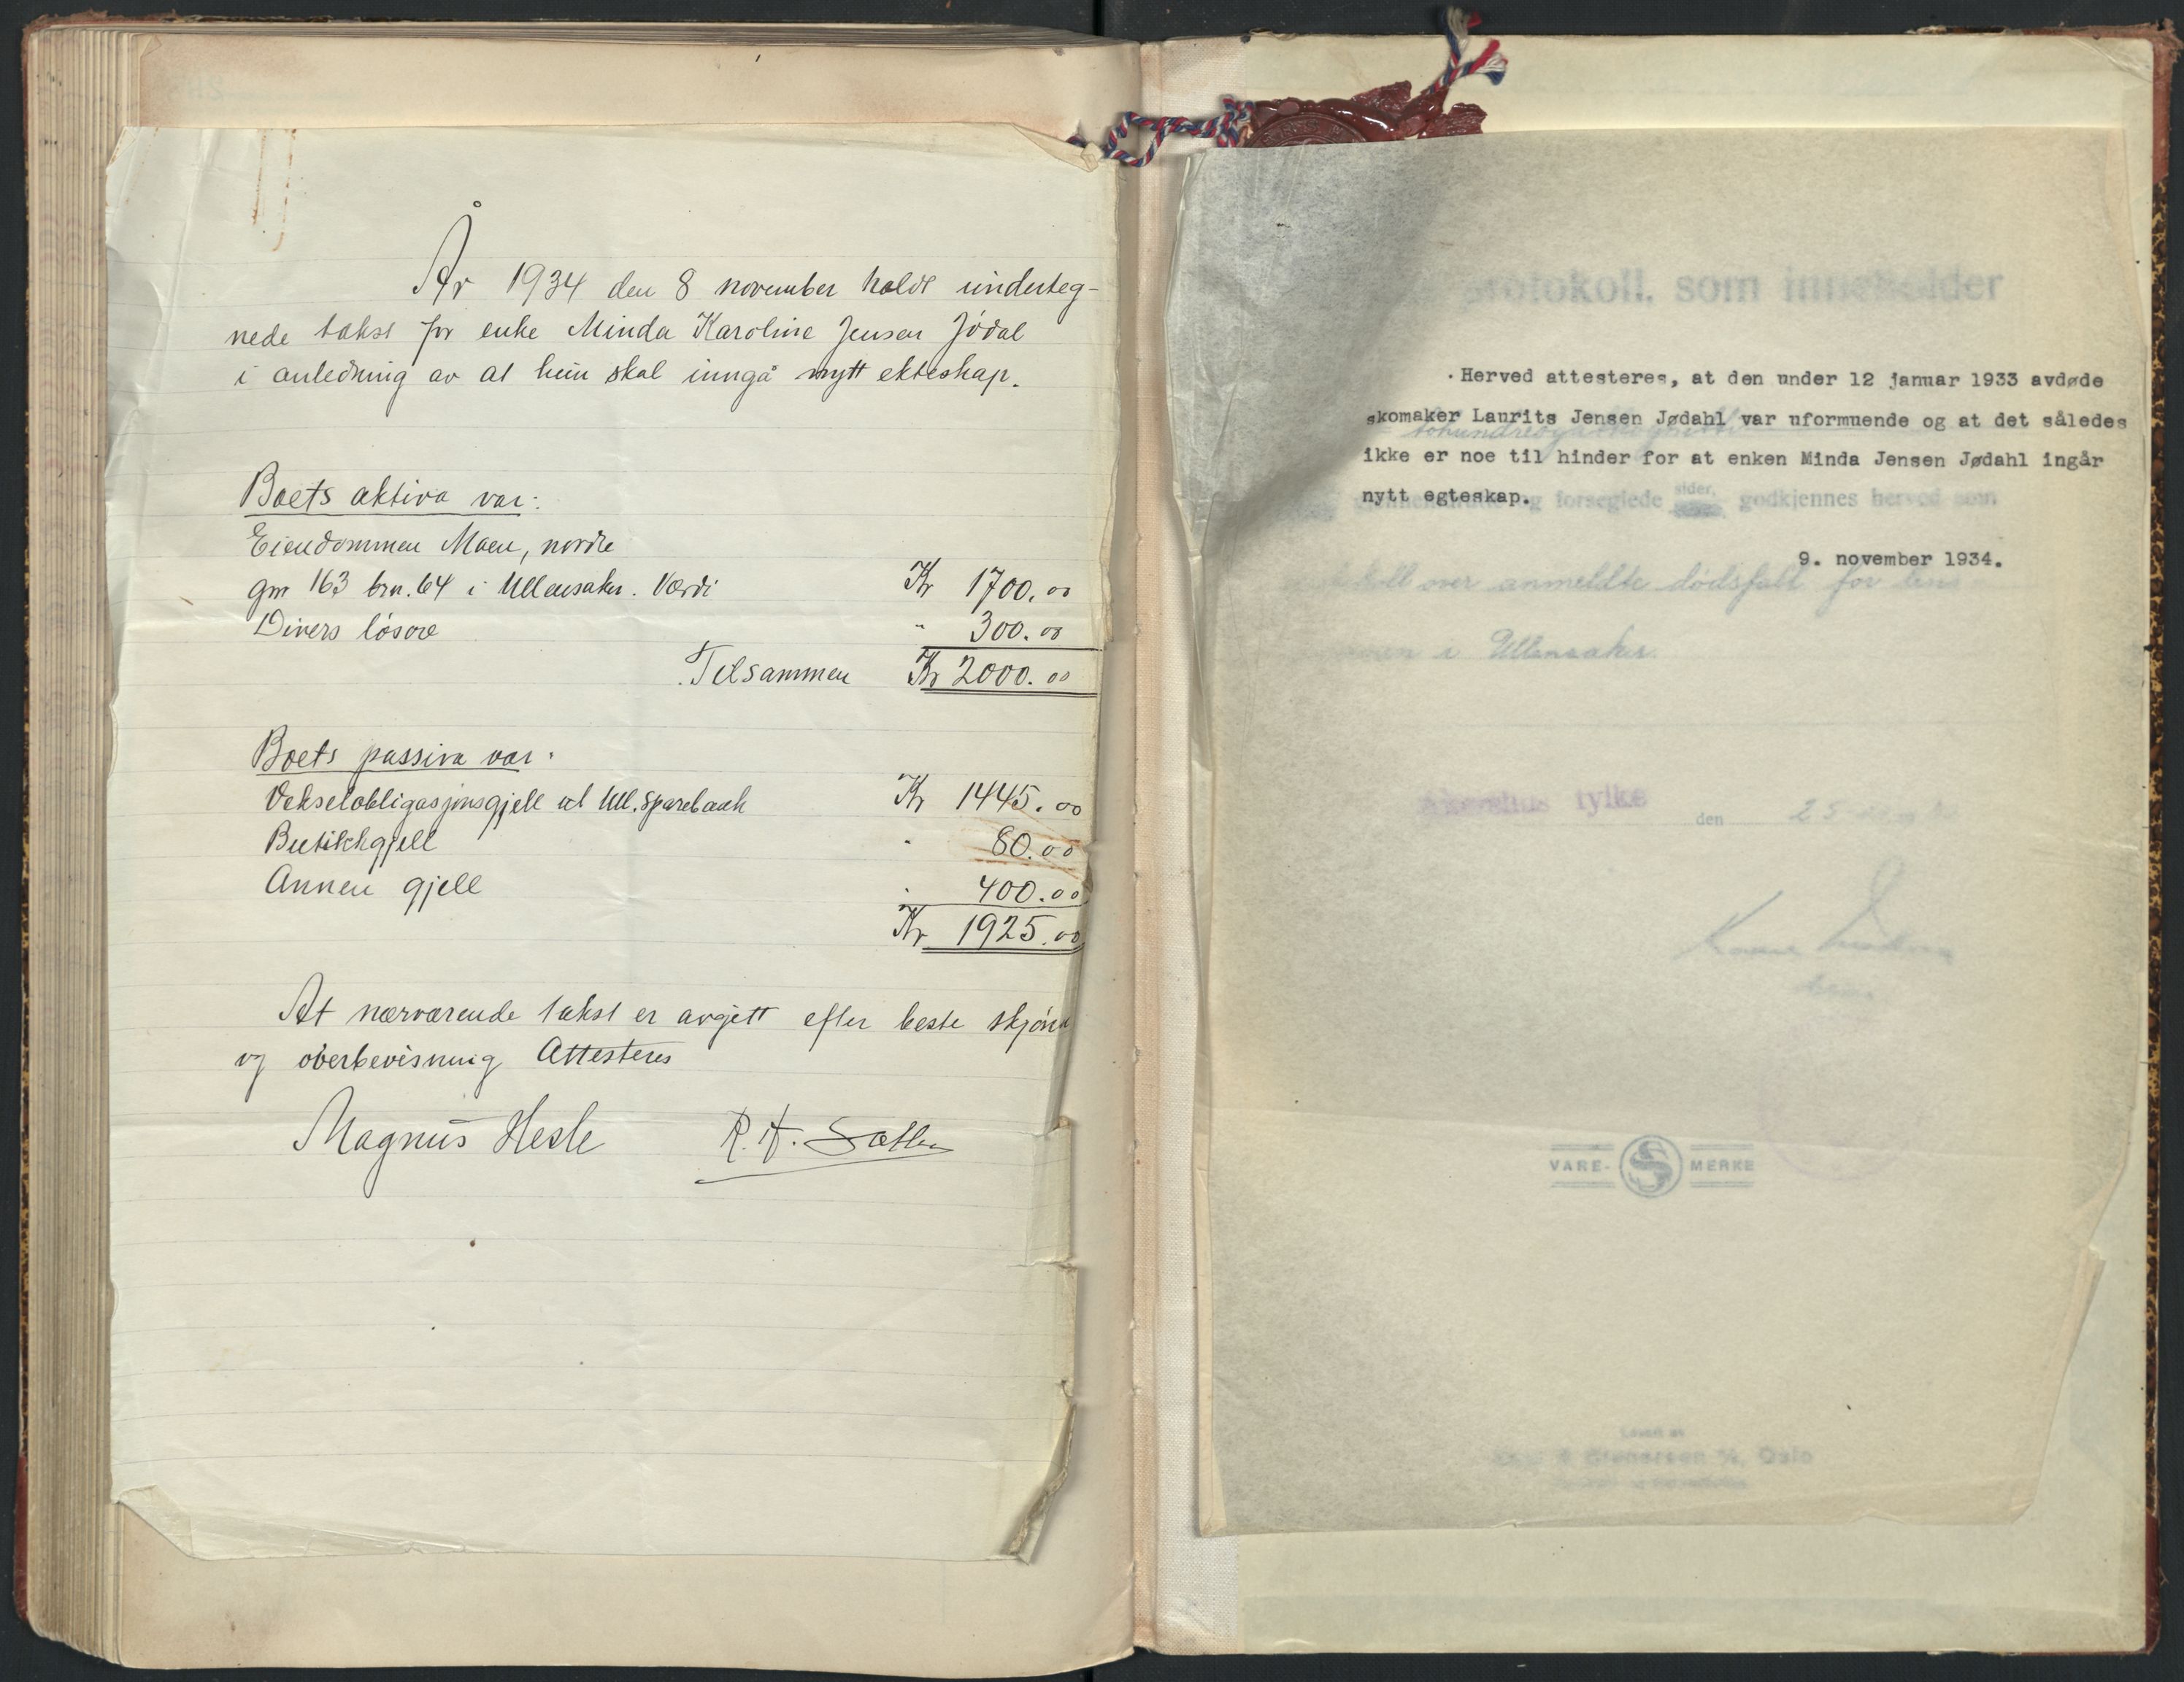 År 1934 den 8 november holdt underteg-
nede takst for enke Minda Karoline Jensen Jödal
i anledning av at hun skal inngå nytt ekteskap.
Boets aktiva var:
Eiendommen Moen, nordre
gnr 163 brn. 64 i Ullensaker. Værdi Kr 1700.00
Divers lösöre " 300.00
Tilsammen Kr 2000.00
Boets passiva var:
Vekselobligasjonsgjell til Ull. Sparebank Kr 1445.00
Butikkgjell " 80.00
Annen gjell " 400.00
Kr 1925.00
At nærværende takst er avgitt efter beste skjönn
og overbevisning Attesteres
Magnus Hesle R. H.
rotokoll, som inneholder
Herved attesteres, at den under 12 januar 1933 avdøde
skomaker Laurits Jensen Jødahl var uformuende og at det således
ikke er noe til hinder for at enken Minda Jensen Jødahl ingår
nytt egteskap.
og forseglede sider, godkjennes herved som
9. november 1934.
koll over anmeldte dödsfall for lens
i Ullensaker.
Akershus fylke den 25
VARE- S MERKE
Stenersen A/S, Oslo